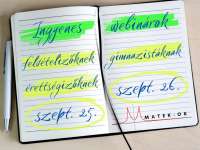 Ingyenes
felvételizőknek
érettségizőknek
szept. 25.
webinárok
gimnazistáknak
szept. 26.
MATEK.OK